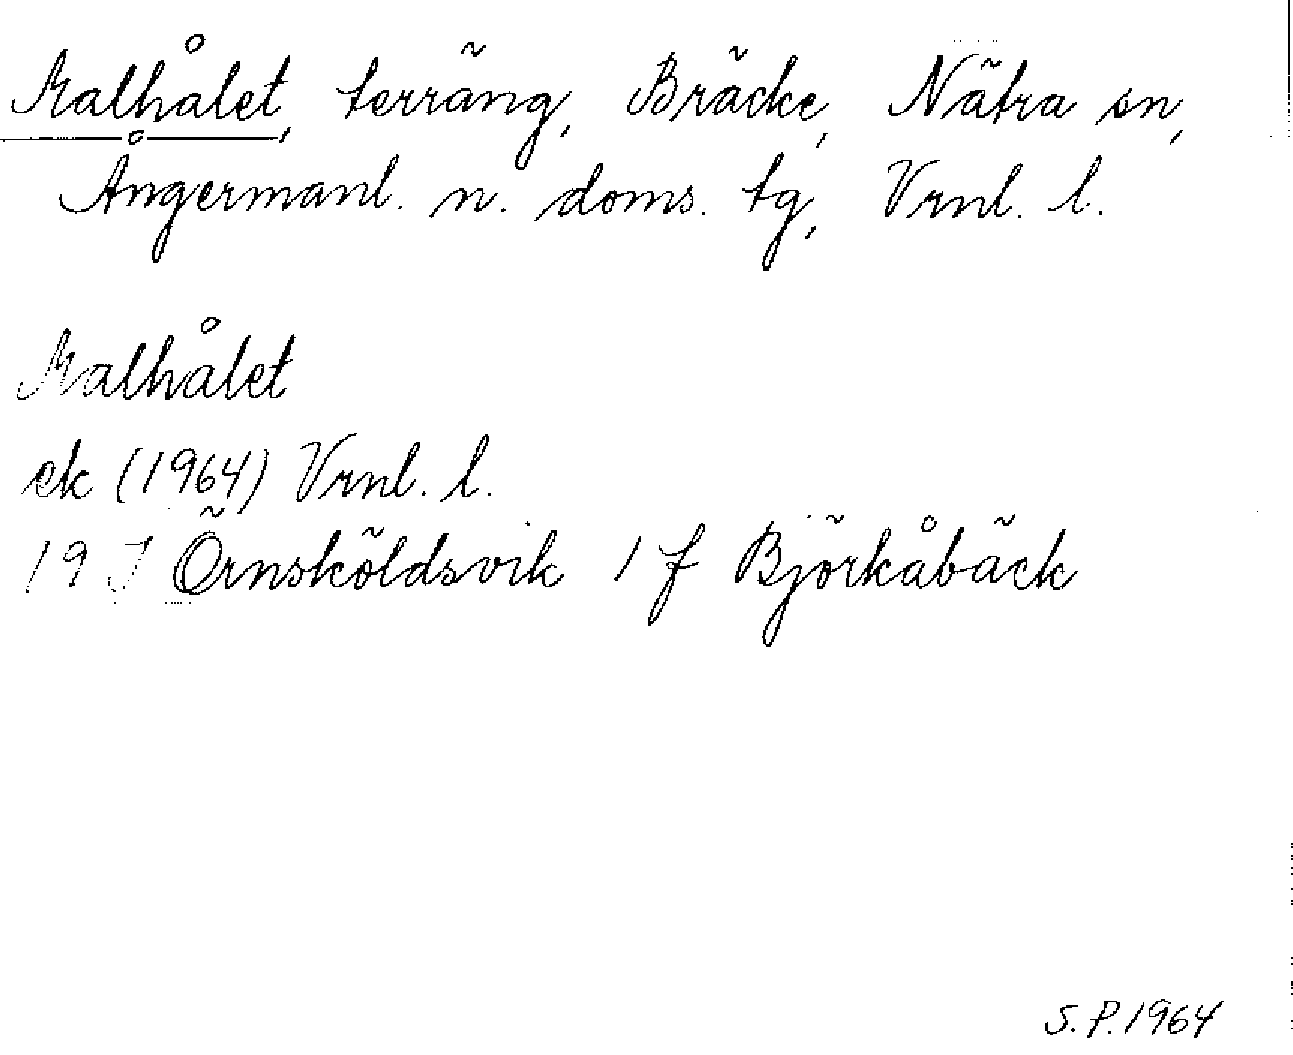 Malhålet, terräng, Bräcke, Nätra sn,
Ångermanl. n. doms. tg, Vrnl. l.
Malhålet
ek (1964) Vrnl. l.
19 J Örnsköldsvik 1 f Björkåbäck
S. P. 1964